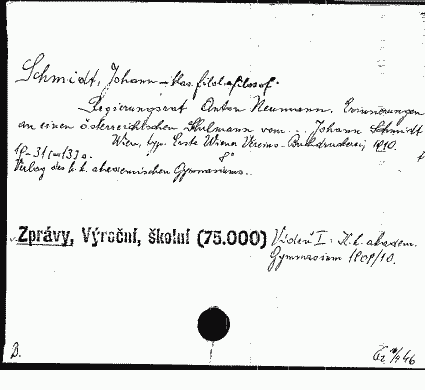 Schmidt, Johann - klas. filol. a filosof.
Regierungsrat Anton Neumann. Erinnerungen
an einen österreichischen Schulmann vom ... Johann Schmidt
Wien, typ. Erste Wiener Vereins-Buchdruckerei 1910.
19-31 [=13] s. 8°
Verlag des k. k. akademischen Gymnasiums.
Zprávy, Výroční, školní (75.000) Vídeň I. K. k. akadem.
Gymnasium 1909/10.
B.